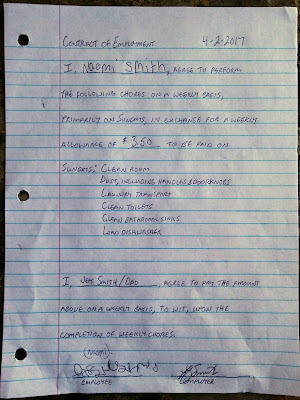 CONTRACT OF EMPLOYMENT 4-2-2017
I, Naomi Smith, AGREE TO PERFORM
THE FOLLOWING CHORES ON A WEEKLY BASIS,
PRIMARILY ON SUNDAYS, IN EXCHANGE FOR A WEEKLY
ALLOWANCE OF $3.50 TO BE PAID ON
SUNDAYS: CLEAN ROOM
DUST, INCLUDING HANDLES & DOORKNOBS
LAUNDRY TRANSPORT
CLEAN TOILETS
CLEAN BATHROOM SINKS
LOAD DISHWASHER
I, JEFF SMITH/DAD, AGREE TO PAY THE AMOUNT
ABOVE ON A WEEKLY BASIS, TO WIT, UPON THE
COMPLETION OF WEEKLY CHORES.
(NAOMI)
EMPLOYEE EMPLOYER